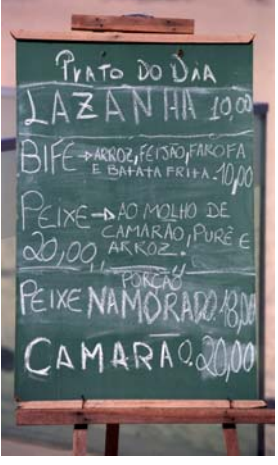 PRATO DO DIA
LAZANHA 10,00
BIFE → ARROZ, FEIJÃO, FAROFA
E BATATA FRITA. 10,00
PEIXE → AO MOLHO DE
CAMARÃO, PURÊ E
20,00,, ARROZ.
PORÇÃO
PEIXE NAMORADO. 18,00
CAMARAO. 20,00